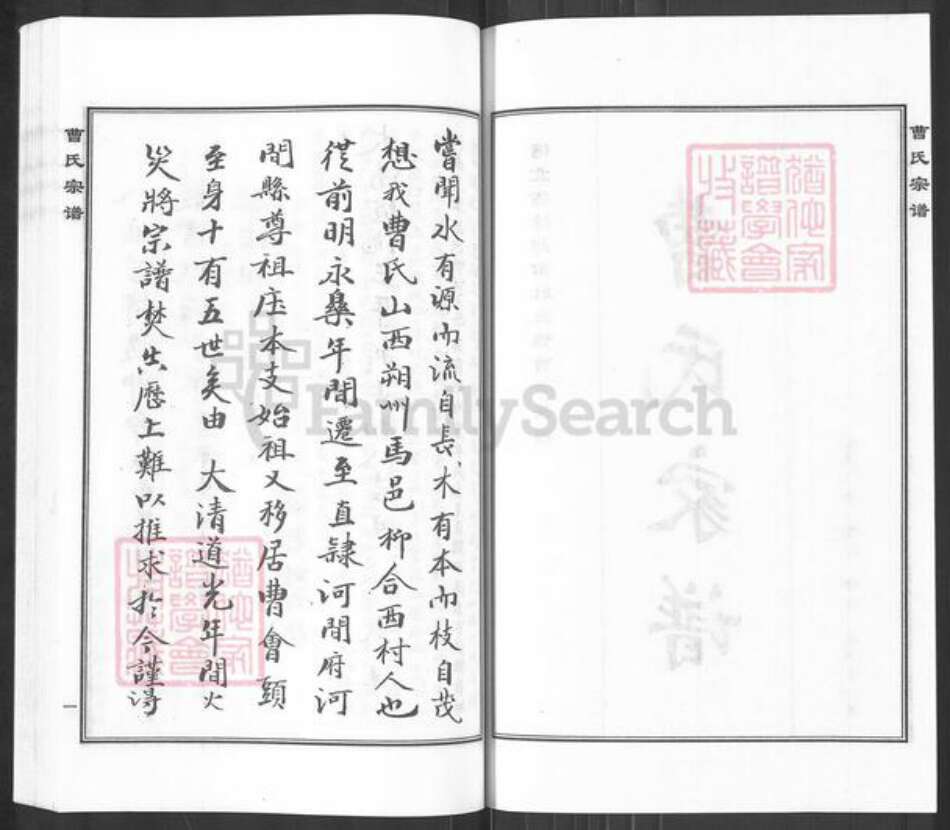 曹氏宗谱
猶他家
譜學會
收藏
嘗聞水有源而流自長木有本而枝自茂
想我曹氏山西朔州馬邑柳合西村人也
從前明永樂年間遷至直隸河間府河
間縣尊祖庄本支始祖又移居曹會頭
至身十有五世矣由 大清道光年間火
災將宗譜焚出歷上難以推求於今謹得
猶他家
譜學會
收藏
曹氏宗谱
一
FamilySearch
氏
家
谱